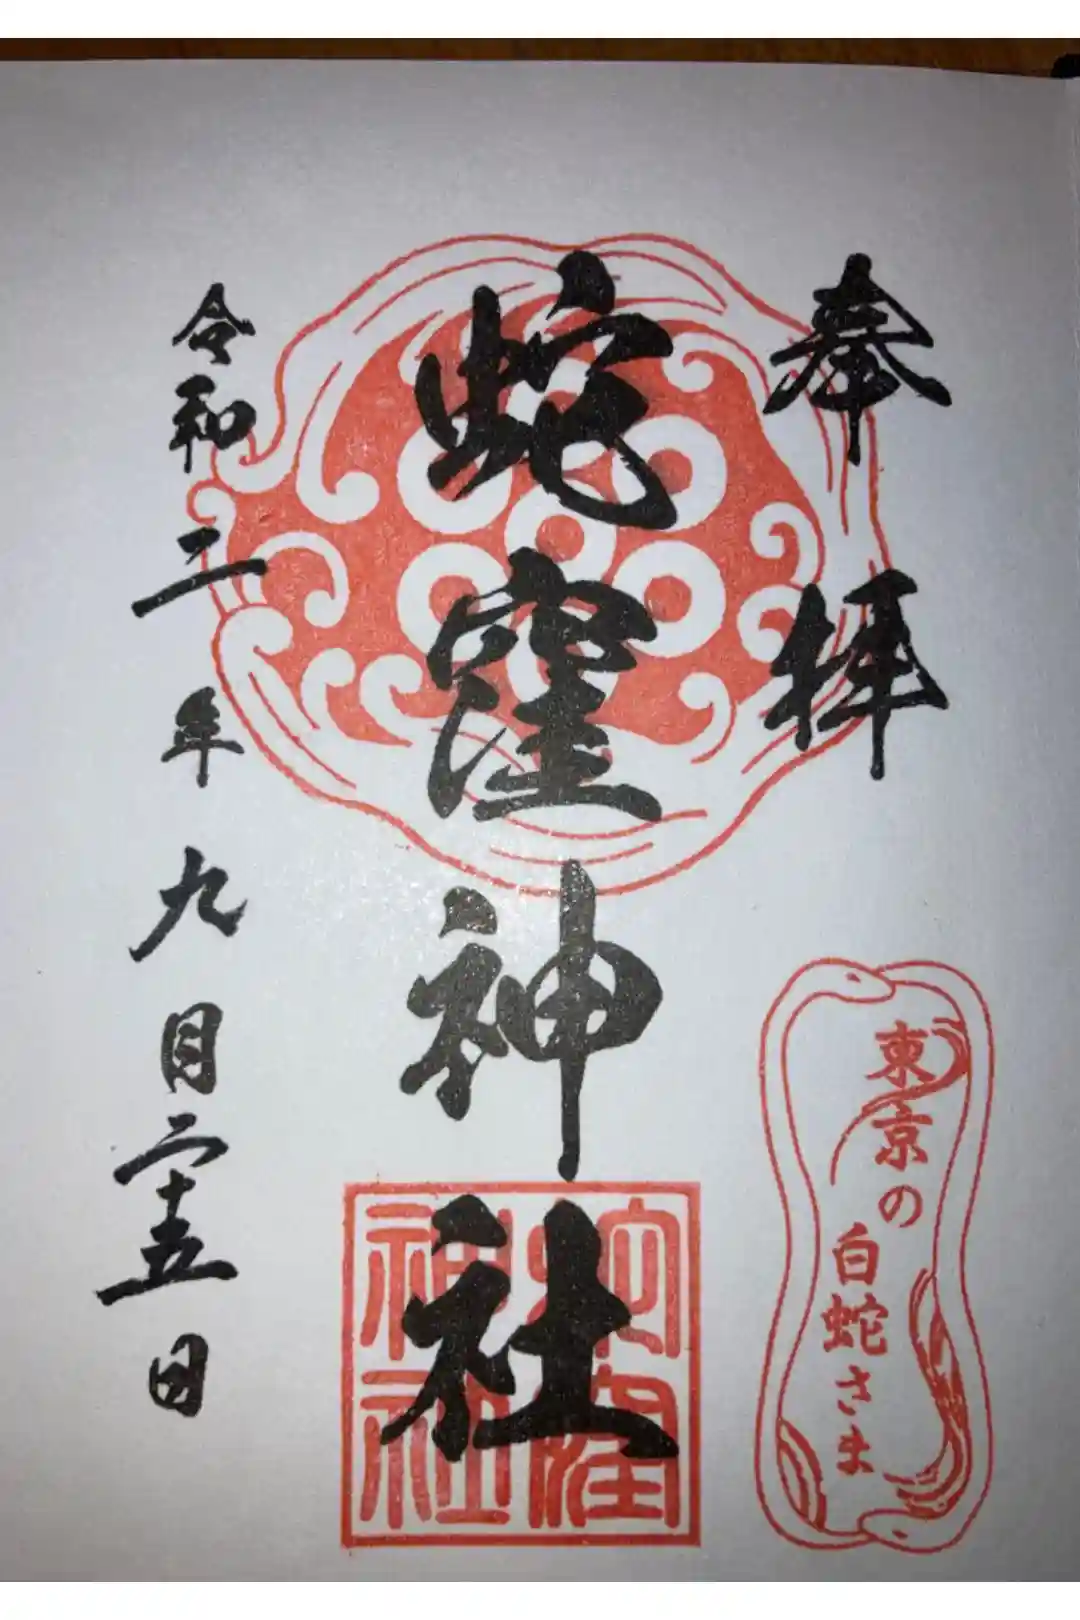 奉拝
蛇窪神社
令和二年九月二十五日
東京の
白蛇さま
蛇窪
神社